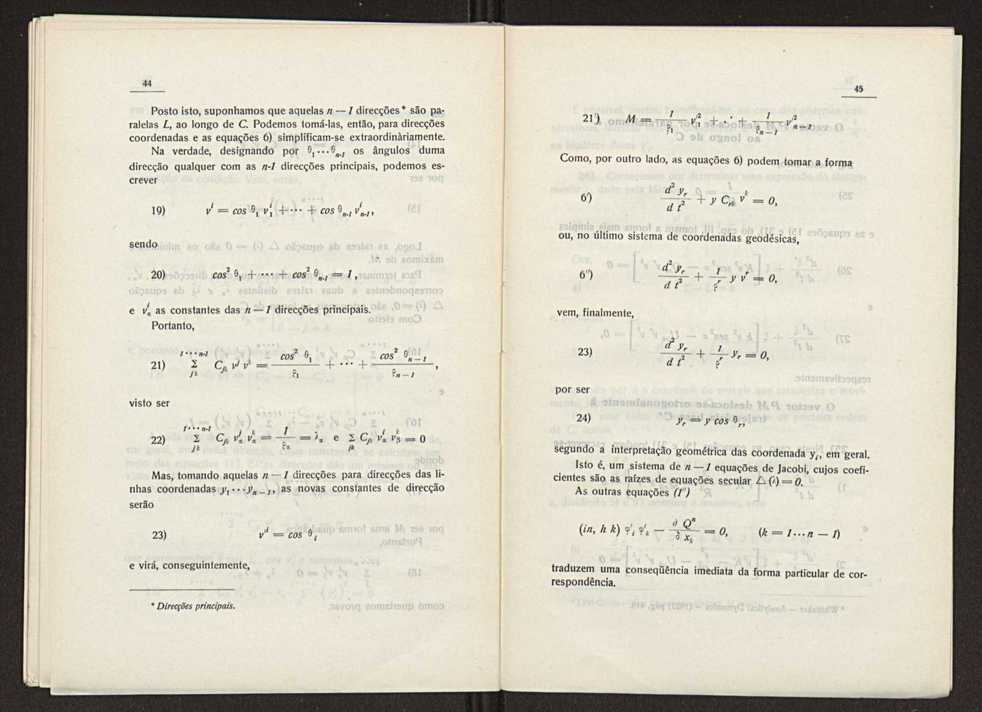 44
Posto isto, suponhamos que aquelas n — 1 direcções * são pa-
ralelas L, ao longo de C. Podemos tomá-las, então, para direcções
coordenadas e as equações 6) simplificam-se extraordinàriamente.
Na verdade, designando por θ₁ ··· θₙ₋₁ os ângulos duma
direcção qualquer com as n-1 direcções principais, podemos es-
crever
19) vⁱ = cos θ₁ v₁ⁱ + ··· + cos θₙ₋₁ vⁱₙ₋₁,
sendo
20) cos² θ₁ + ··· + cos² θₙ₋₁ = 1,
e vₐⁱ as constantes das n — 1 direcções principais.
Portanto,
21) Σ Cⱼₖ vʲ vᵏ = cos² θ₁ / ρ₁ + ··· + cos² θₙ₋₁ / ρₙ₋₁,
visto ser
22) Σ Cⱼₖ vₐʲ vₐᵏ = 1 / ρₐ = λₐ e Σ Cⱼₖ vₐʲ vᵏ = 0
Mas, tomando aquelas n — 1 direcções para direcções das li-
nhas coordenadas y₁ ··· yₙ₋₁, as novas constantes de direcção
serão
23) vⁱ = cos θᵢ
e virá, conseguintemente,
* Direcções principais.
45
21') M = 1 / ρ₁ v₁'² + ··· + 1 / ρₙ₋₁ v'²ₙ₋₁
Como, por outro lado, as equações 6) podem tomar a forma
6') d² yᵣ / d t² + y Cᵣₖ vᵏ = 0,
ou, no último sistema de coordenadas geodésicas,
6'') d² yᵣ / d t² + 1 / ρʳ y vʳ = 0,
vem, finalmente,
23) d² yᵣ / d t² + 1 / ρʳ yᵣ = 0,
por ser
24) yᵣ = y cos θᵣ,
segundo a interpretação geométrica das coordenada yᵢ, em geral.
Isto é, um sistema de n — 1 equações de Jacobi, cujos coefi-
cientes são as raízes de equações secular △ (λ) = 0.
As outras equações (1')
(in, h k) φ'ᵢ φ'ₖ — ∂ Qⁿ / ∂ xᵢ = 0, (k = 1 ··· n — 1)
traduzem uma conseqüência imediata da forma particular de cor-
respondência.